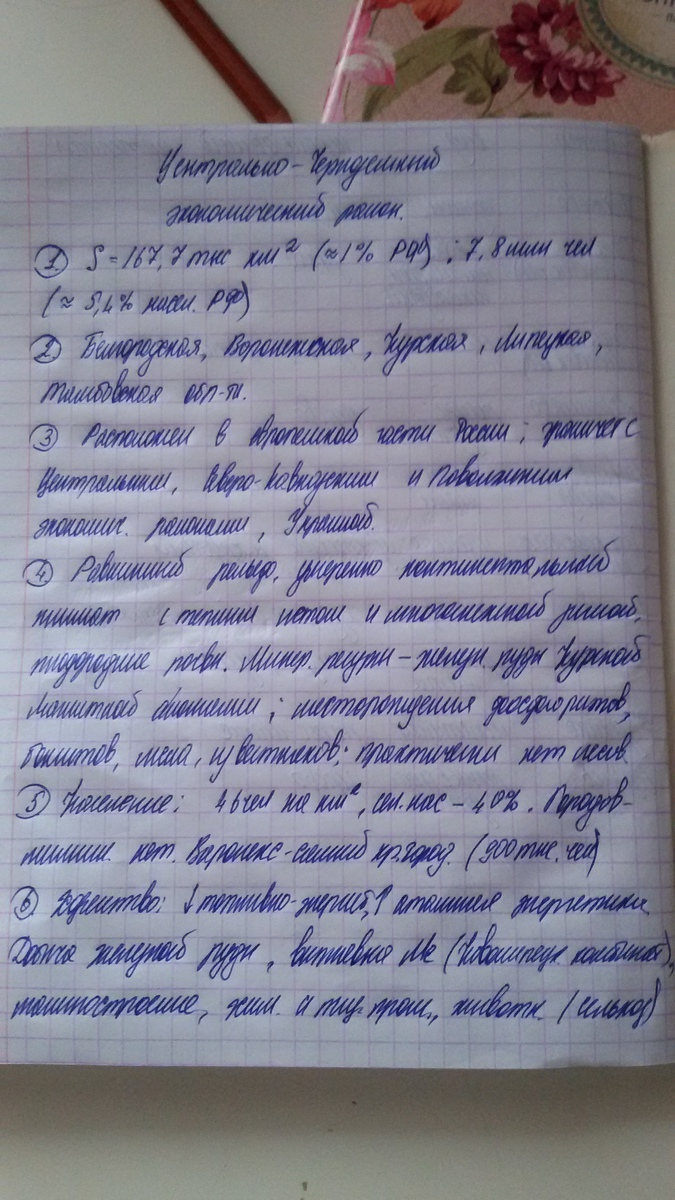 Центрально-Черноземный
экономический район.
① S = 167,7 тыс км² (≈1% РФ) ; 7,8 млн чел
(≈ 5,4% насел. РФ)
② Белгородская, Воронежская, Курская, Липецкая,
Тамбовская обл-ти.
③ Расположен в европейской части России; граничит с
Центральным, Северо-Кавказским и Поволжским
экономич. районами, Украиной.
④ Равнинный рельеф, умеренно континентальный
климат с теплым летом и многоснежной зимой,
плодородные почвы. Минер. ресурсы – желези. руды Курской
Магнитной Аномалии; месторождения фосфоритов,
бокситов, мела, известняков; практически нет лесов.
⑤ Население: 46 чел на км², сел. нас – 40%. Городов-
миллион. нет. Воронеж - самый кр. город. (900 тыс. чел)
⑥ Хозяйство: ↓ топливно-энергет, ↑ атомная энергетика.
Добыча железной руды, выплавка Ме (Новолипецк. комбинат),
машиностроение, хим. и пищ. пром., животн. (сельхоз)